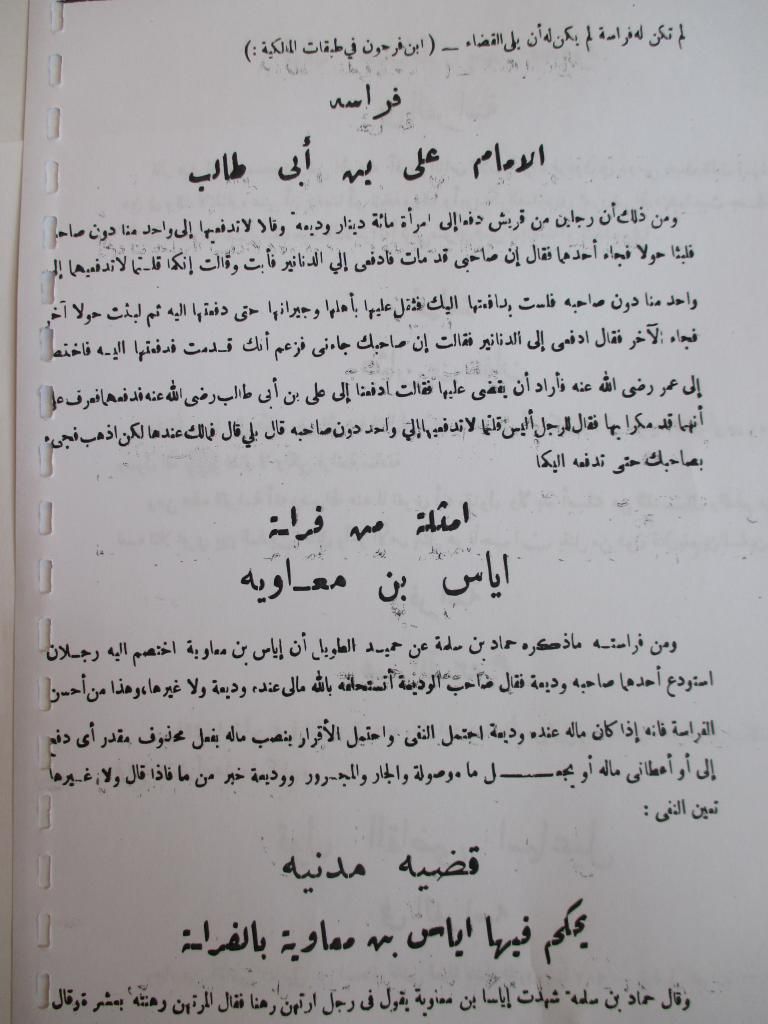 لم تكن له فراسة لم يكن له أن يلى القضاء ــ ( ابن فرحون في طبقات المالكية : )
فراسه
الامام على بن أبى طالب
ومن ذلك أن رجلين من قريش دفعا إلى امرأة مائة دينار وديعة وقالا لا تدفعيها إلى واحد منا دون صاحبه
فلبثا حولا فجاء أحدهما فقال إن صاحبى قد مات فادفعى إلي الدنانير فأبت وقالت إنكما قلتما لا تدفعيها إلى
واحد منا دون صاحبه فلست بدافعتها اليك فثقل عليها بأهلها وجيرانها حتى دفعتها اليه ثم لبثت حولا آخر
فجاء الآخر فقال ادفعى إلى الدنانير فقالت إن صاحبك جاءنى فزعم أنك قدمت فدفعتها اليه فاختصما
إلى عمر رضى الله عنه فأراد أن يقضى عليها فقالت ادفعنا إلى على بن أبى طالب رضى الله عنه فدفعهما فعرف على
أنهما قد مكرا بها فقال للرجل أليس قلتما لا تدفعيها إلي واحد دون صاحبه قال بلي قال فمالك عندها لكن اذهب فجىء
بصاحبك حتى تدفعه اليكما
امثلة من فراسة
اياس بن معـاويه
ومن فراسته ماذكره حماد بن سلمة عن حميد الطويل أن إياس بن معاوية اختصم اليه رجلان
استودع أحدهما صاحبه وديعة فقال صاحب الوديعة أستحلفه بالله مالى عنده وديعة ولا غيرها، وهذا من أحسن
الفراسة فانه إذا كان ماله عنده وديعة احتمل النفى واحتمل الأقرار بنصب ماله بفعل محذوف مقدر أى دفع
إلى أو أعطانى ماله أو يجعــــل ما موصولة والجار والمجرور ووديعة خبر من ما فاذا قال ولا غيرها
تعين النفى :
قضيه مدنيه
يحكم فيها اياس بن معاوية بالفراسة
وقال حماد بن سلمة شهدت إياسا بن معوية يقول فى رجل ارتهن رهنا فقال المرتهن رهنته بعشرة وقال